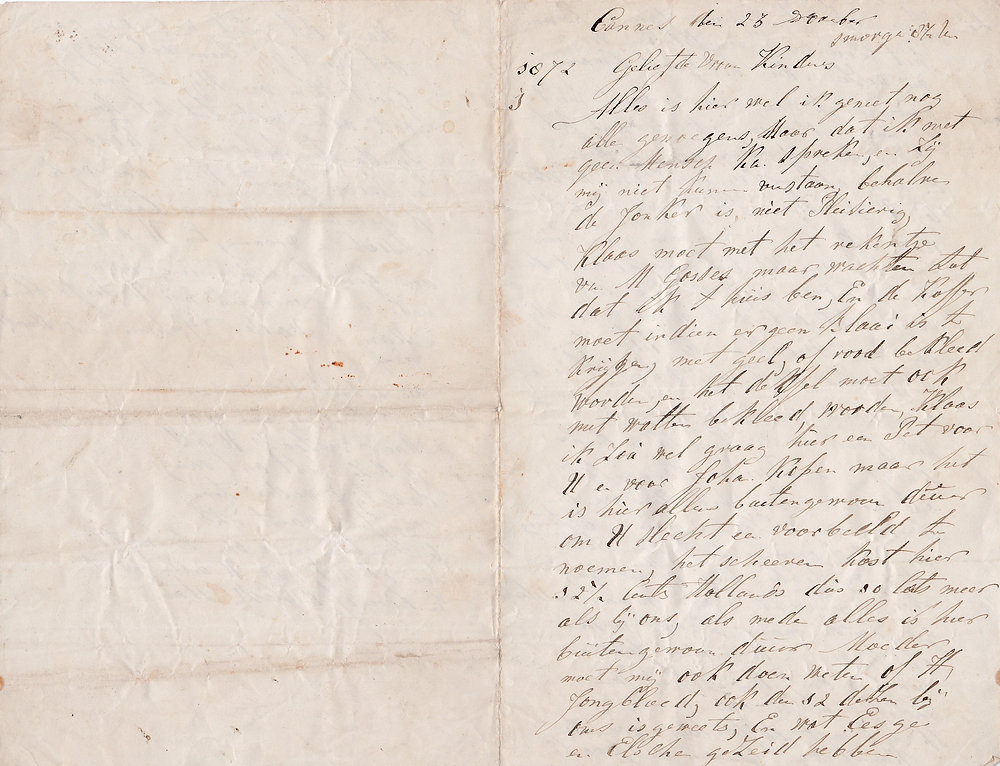 Cannes den 23 December
smorgens
1872 Geliefde Vrouw Kinders
Alles is hier wel ik geniet nog
alle genoegens, Maar dat ik met
geen Mensch kan spreken, en Zij
mij niet kunnen verstaan, behalve
de Jonker is niet Pleisierig,
Klaas moet met het rekentje
van M Gosses maar wachten tot
dat ik t huis ben, En de Koffer
moet indien er geen Blaai is te
Krijgen, met geel, of rood bekleed
worden, en het deksel moet ook
met watten bekleed worden, Klaas
ik Zou wel graag hier een Pet voor
U en voor Johan Kopen maar het
is hier alles buitengewoon duur
om U slecht een voorbeeld te
noemen, het scheeren kost hier
12½ Cents Hollands dus 10 Cats meer
als bij ons, als mede alles is hier
buitengewoon duur Moeder
moet mij ook doen weten of H,
Jongbloed, ook den 12 dezer bij
ons is geweest, En wat Eesge
en Elsche geZeid hebben